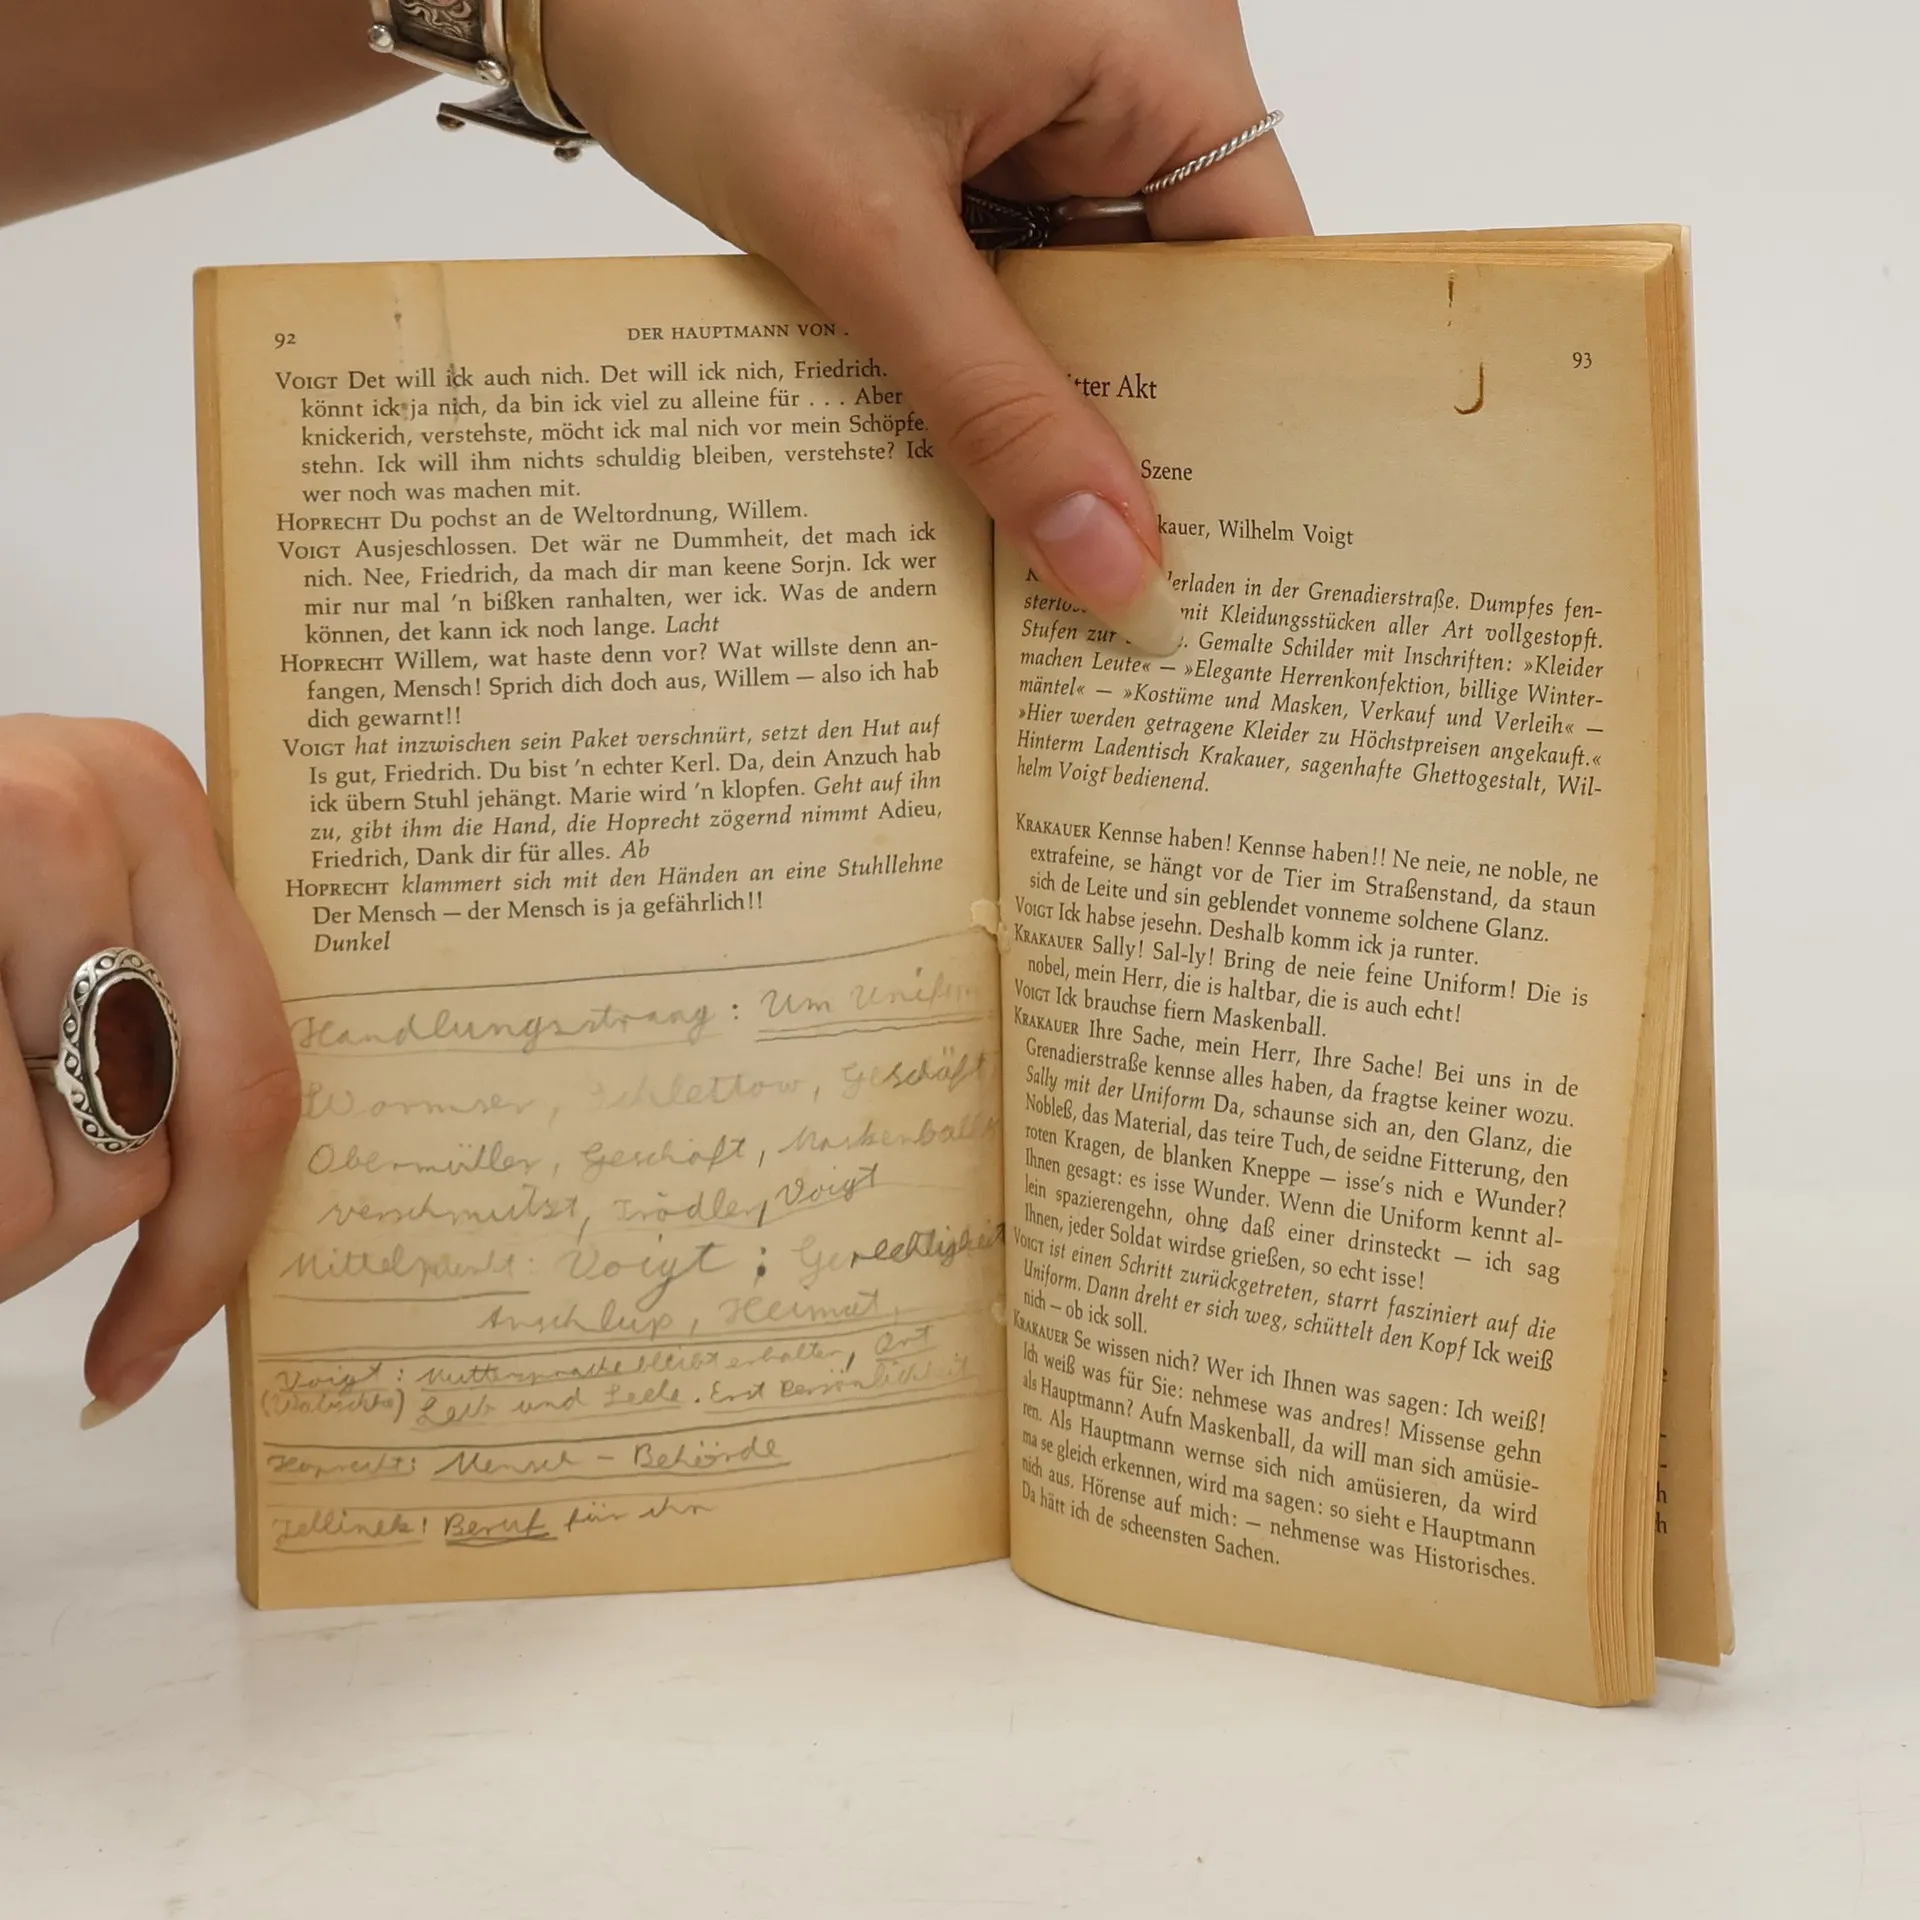 92
DER HAUPTMANN VON
VOIGT Det will ick auch nich. Det will ick nich, Friedrich.
könnt ick ja nich, da bin ick viel zu alleine für . . . Aber
knickerich, verstehste, möcht ick mal nich vor mein Schöpfe
stehn. Ick will ihm nichts schuldig bleiben, verstehste? Ick
wer noch was machen mit.
HOPRECHT Du pochst an de Weltordnung, Willem.
VOIGT Ausjeschlossen. Det wär ne Dummheit, det mach ick
nich. Nee, Friedrich, da mach dir man keene Sorjn. Ick wer
mir nur mal 'n bißken ranhalten, wer ick. Was de andern
können, det kann ick noch lange. Lacht
HOPRECHT Willem, wat haste denn vor? Wat willste denn an-
fangen, Mensch! Sprich dich doch aus, Willem — also ich hab
dich gewarnt!!
VOIGT hat inzwischen sein Paket verschnürt, setzt den Hut auf
Is gut, Friedrich. Du bist 'n echter Kerl. Da, dein Anzuch hab
ick übern Stuhl jehängt. Marie wird 'n klopfen. Geht auf ihn
zu, gibt ihm die Hand, die Hoprecht zögernd nimmt Adieu,
Friedrich, Dank dir für alles. Ab
HOPRECHT klammert sich mit den Händen an eine Stuhllehne
Der Mensch — der Mensch is ja gefährlich!!
Dunkel
Handlungsstrang : Um Unifor
Wormser, Schlettow, Geschäft
Obermüller, Geschäft, Maskenball
verschmutzt, Trödler, Voigt
Mittelpunkt: Voigt : Gerechtigkeit
Anschluß, Heimat,
Voigt : Muttersprache bleibt erhalten, Ort
Leib und Seele. Erst Persönlichkeit
Hoprecht: Mensch – Behörde
Jellinek! Beruf für ihn
93
tter Akt
Szene
kauer, Wilhelm Voigt
erladen in der Grenadierstraße. Dumpfes fen-
mit Kleidungsstücken aller Art vollgestopft.
Stufen zur Gemalte Schilder mit Inschriften: »Kleider
machen Leute« — »Elegante Herrenkonfektion, billige Winter-
mäntel« — »Kostüme und Masken, Verkauf und Verleih« —
»Hier werden getragene Kleider zu Höchstpreisen angekauft.«
Hinterm Ladentisch Krakauer, sagenhafte Ghettogestalt, Wil-
helm Voigt bedienend.
KRAKAUER Kennse haben! Kennse haben!! Ne neie, ne noble, ne
extrafeine, se hängt vor de Tier im Straßenstand, da staun
sich de Leite und sin geblendet vonneme solchene Glanz.
VOIGT Ick habse jesehn. Deshalb komm ick ja runter.
KRAKAUER Sally! Sal-ly! Bring de neie feine Uniform! Die is
nobel, mein Herr, die is haltbar, die is auch echt!
VOIGT Ick brauchse fiern Maskenball.
KRAKAUER Ihre Sache, mein Herr, Ihre Sache! Bei uns in de
Grenadierstraße kennse alles haben, da fragtse keiner wozu.
Sally mit der Uniform Da, schaunse sich an, den Glanz, die
Nobleß, das Material, das teire Tuch, de seidne Fitterung, den
roten Kragen, de blanken Kneppe — isse's nich e Wunder?
Ihnen gesagt: es isse Wunder. Wenn die Uniform kennt al-
lein spazierengehn, ohne daß einer drinsteckt — ich sag
Ihnen, jeder Soldat wirdse grießen, so echt isse!
VOIGT ist einen Schritt zurückgetreten, starrt fasziniert auf die
Uniform. Dann dreht er sich weg, schüttelt den Kopf Ick weiß
nich — ob ick soll.
KRAKAUER Se wissen nich? Wer ich Ihnen was sagen: Ich weiß!
Ich weiß was für Sie: nehmese was andres! Missense gehn
als Hauptmann? Aufn Maskenball, da will man sich amüsie-
ren. Als Hauptmann wernse sich nich amüsieren, da wird
ma se gleich erkennen, wird ma sagen: so sieht e Hauptmann
nich aus. Hörense auf mich: — nehmense was Historisches.
Da hätt ich de scheensten Sachen.